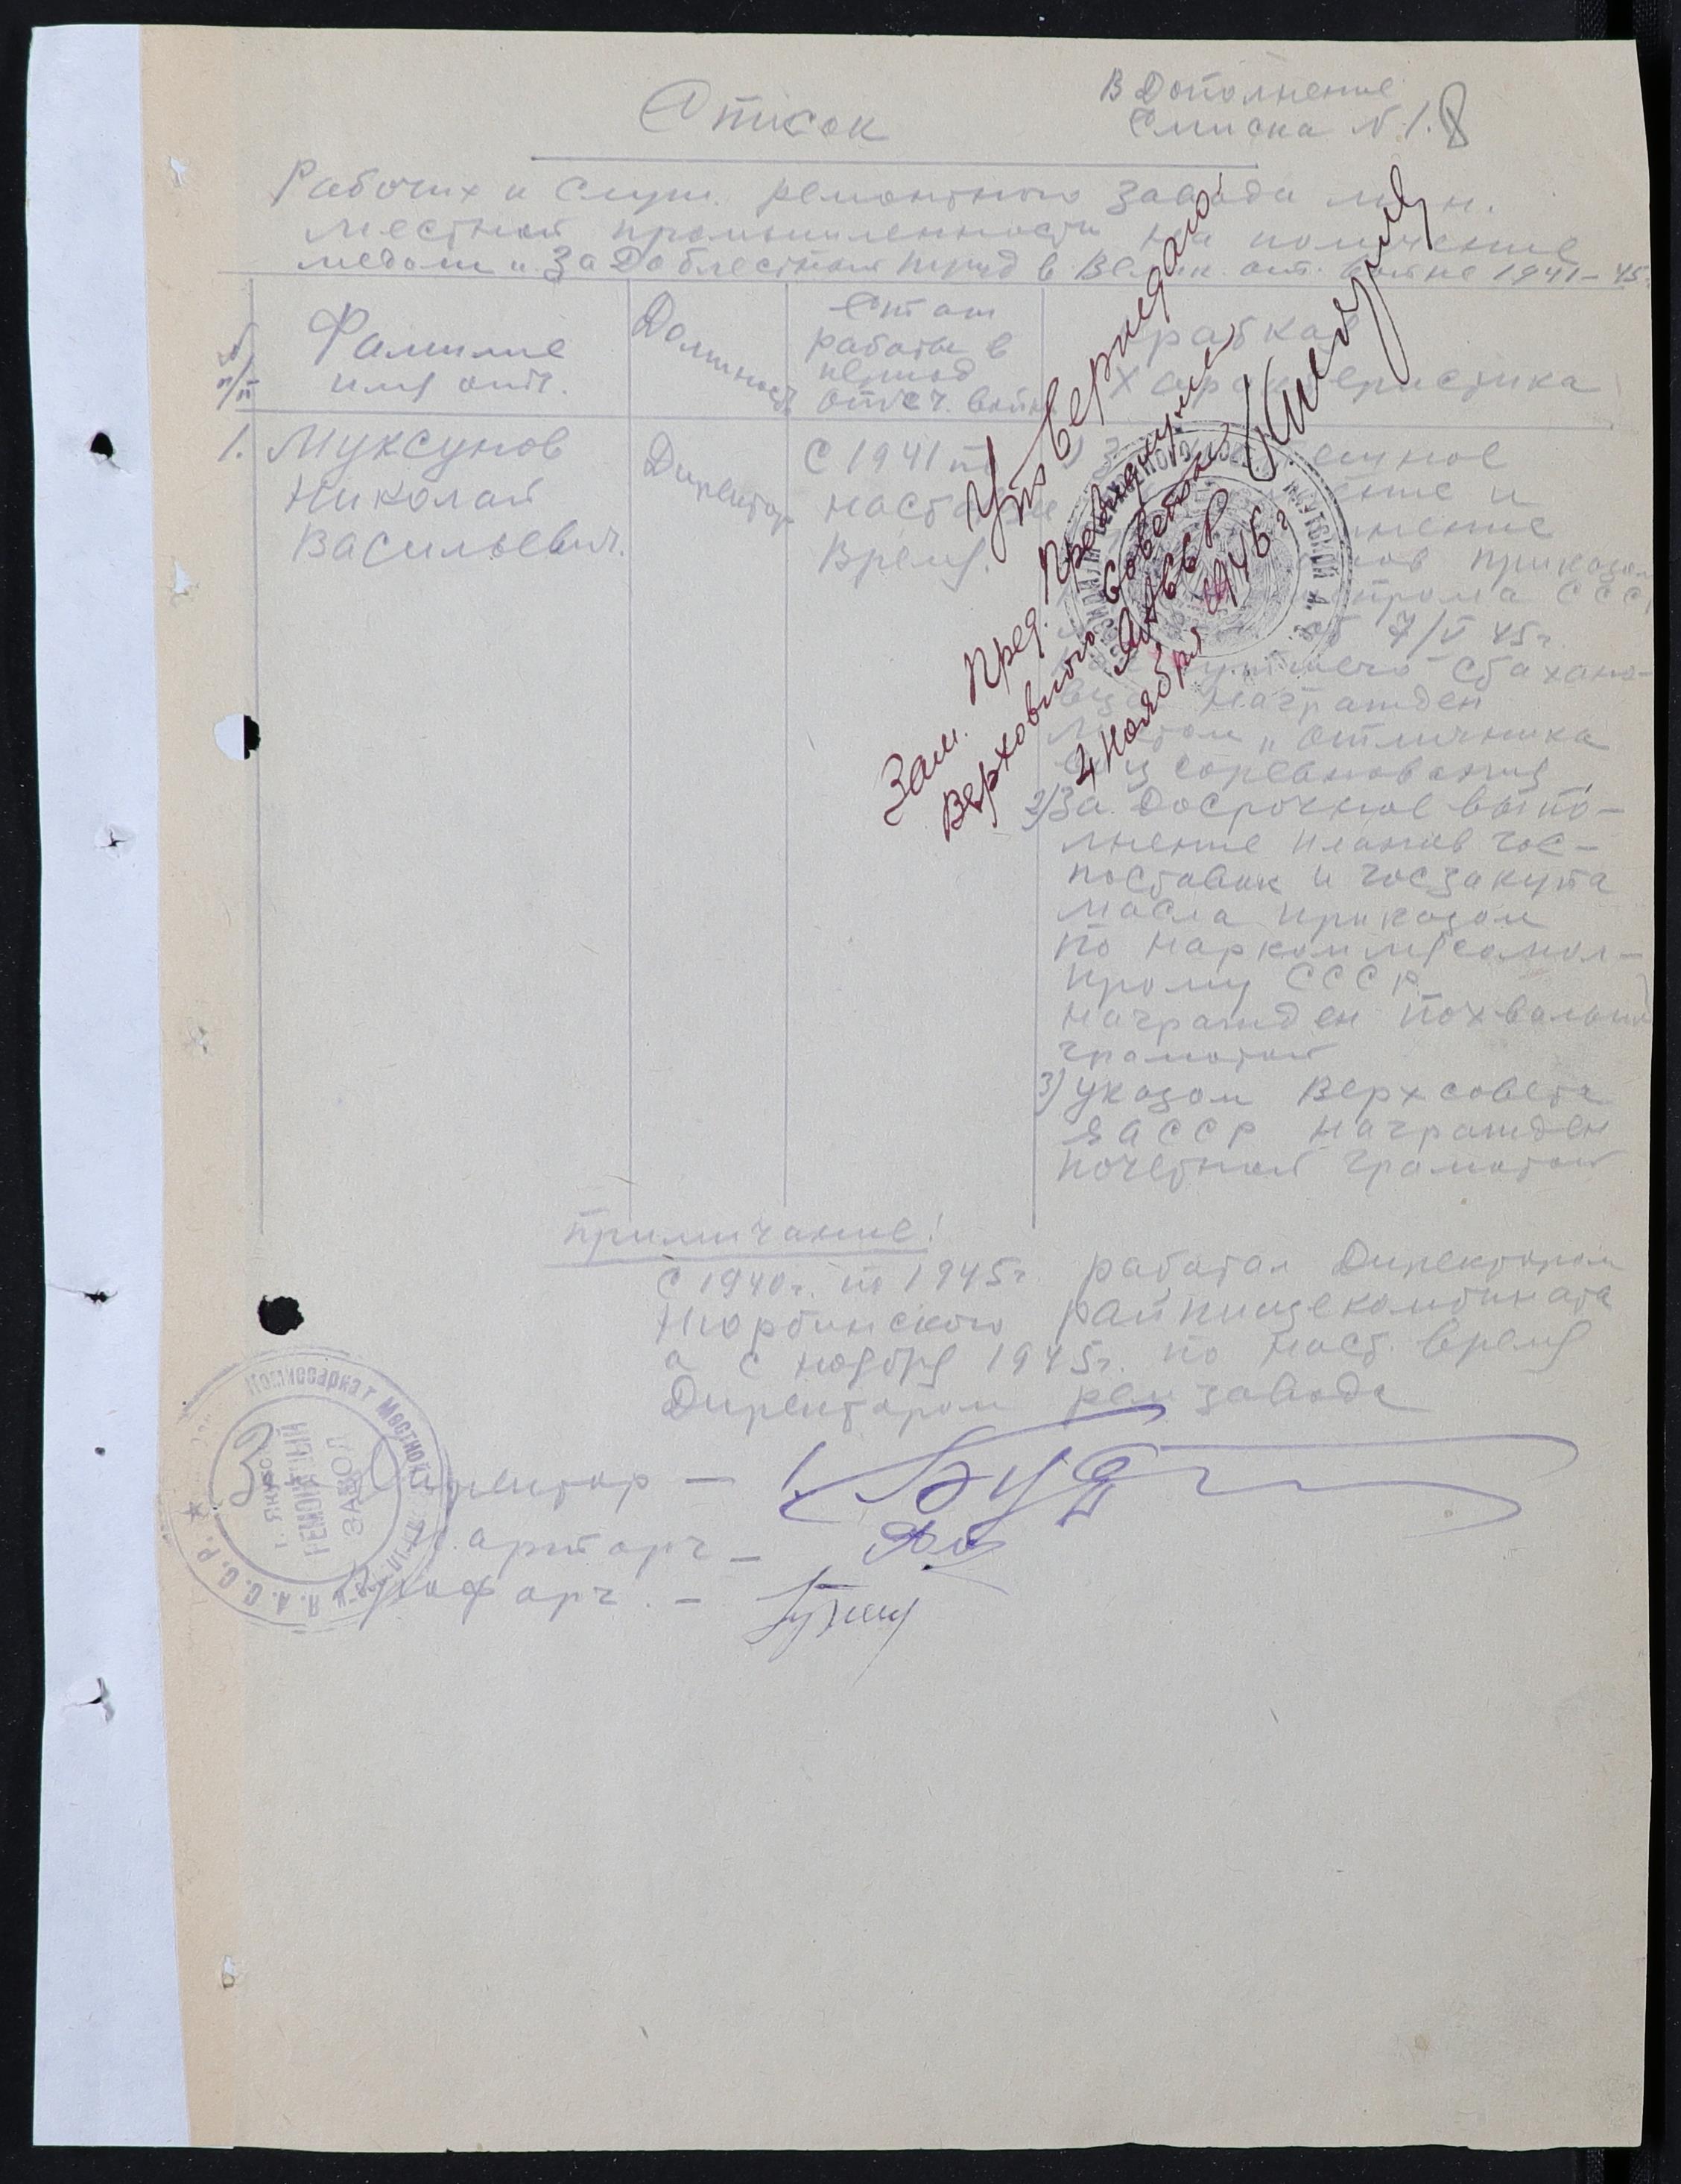 В дополнение
Списка № 1.
8
Список
Рабочих и служ. ремонтного завода мин.
местной промышленности на получение
медали „За Доблестный труд в Велик. от. войне 1941–45
№ п/п
Фамилие имя отч.
Должность
Стаж работы в период отеч. войны
Краткая характеристика
1. Муксунов
Николай
Васильевич.
Директор
С 1941 по
настояще
время.
1) За
ение и
нение
нов приказом
прома СССР
от 7/V 45г.
стахано-
вца награжден
„отличника
соц соревнования
2) За досрочное выпо-
лнение планов гос-
поставок и госзакупа
масла приказом
по наркоммясомол-
прому СССР
награжден похвальной
грамотой
3) Указом Верхсовета
ЯАССР награжден
почетной грамотой
Утверждаю:
Зам. Пред. Президиума
Верховного Совета
ЯАССР
4 ноября 1946 г
примичание!
С 1940г. по 1945г. работал Директором
Нюрбинского райпищекомбината
а с ноября 1945г. по наст. время
Директором рем завода
Комиссариат Местной
Я.А.С.С.Р.
г. Якутск
РЕМОНТНЫЙ
ЗАВОД
Директор –
Парторг –
Профорг. –